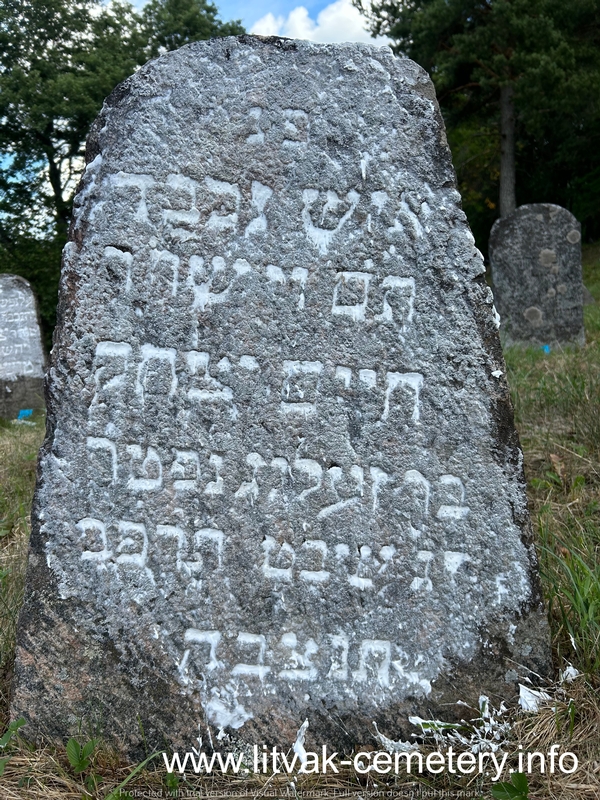 פנ
איש נכבד
תם וישר
חיים יצחק
בר זעליג נפטר
שבט תרפב
תנצבה
www.litvak-cemetery.info
Protected with trial version of Visual Watermark. Full version doesn't put this mark.